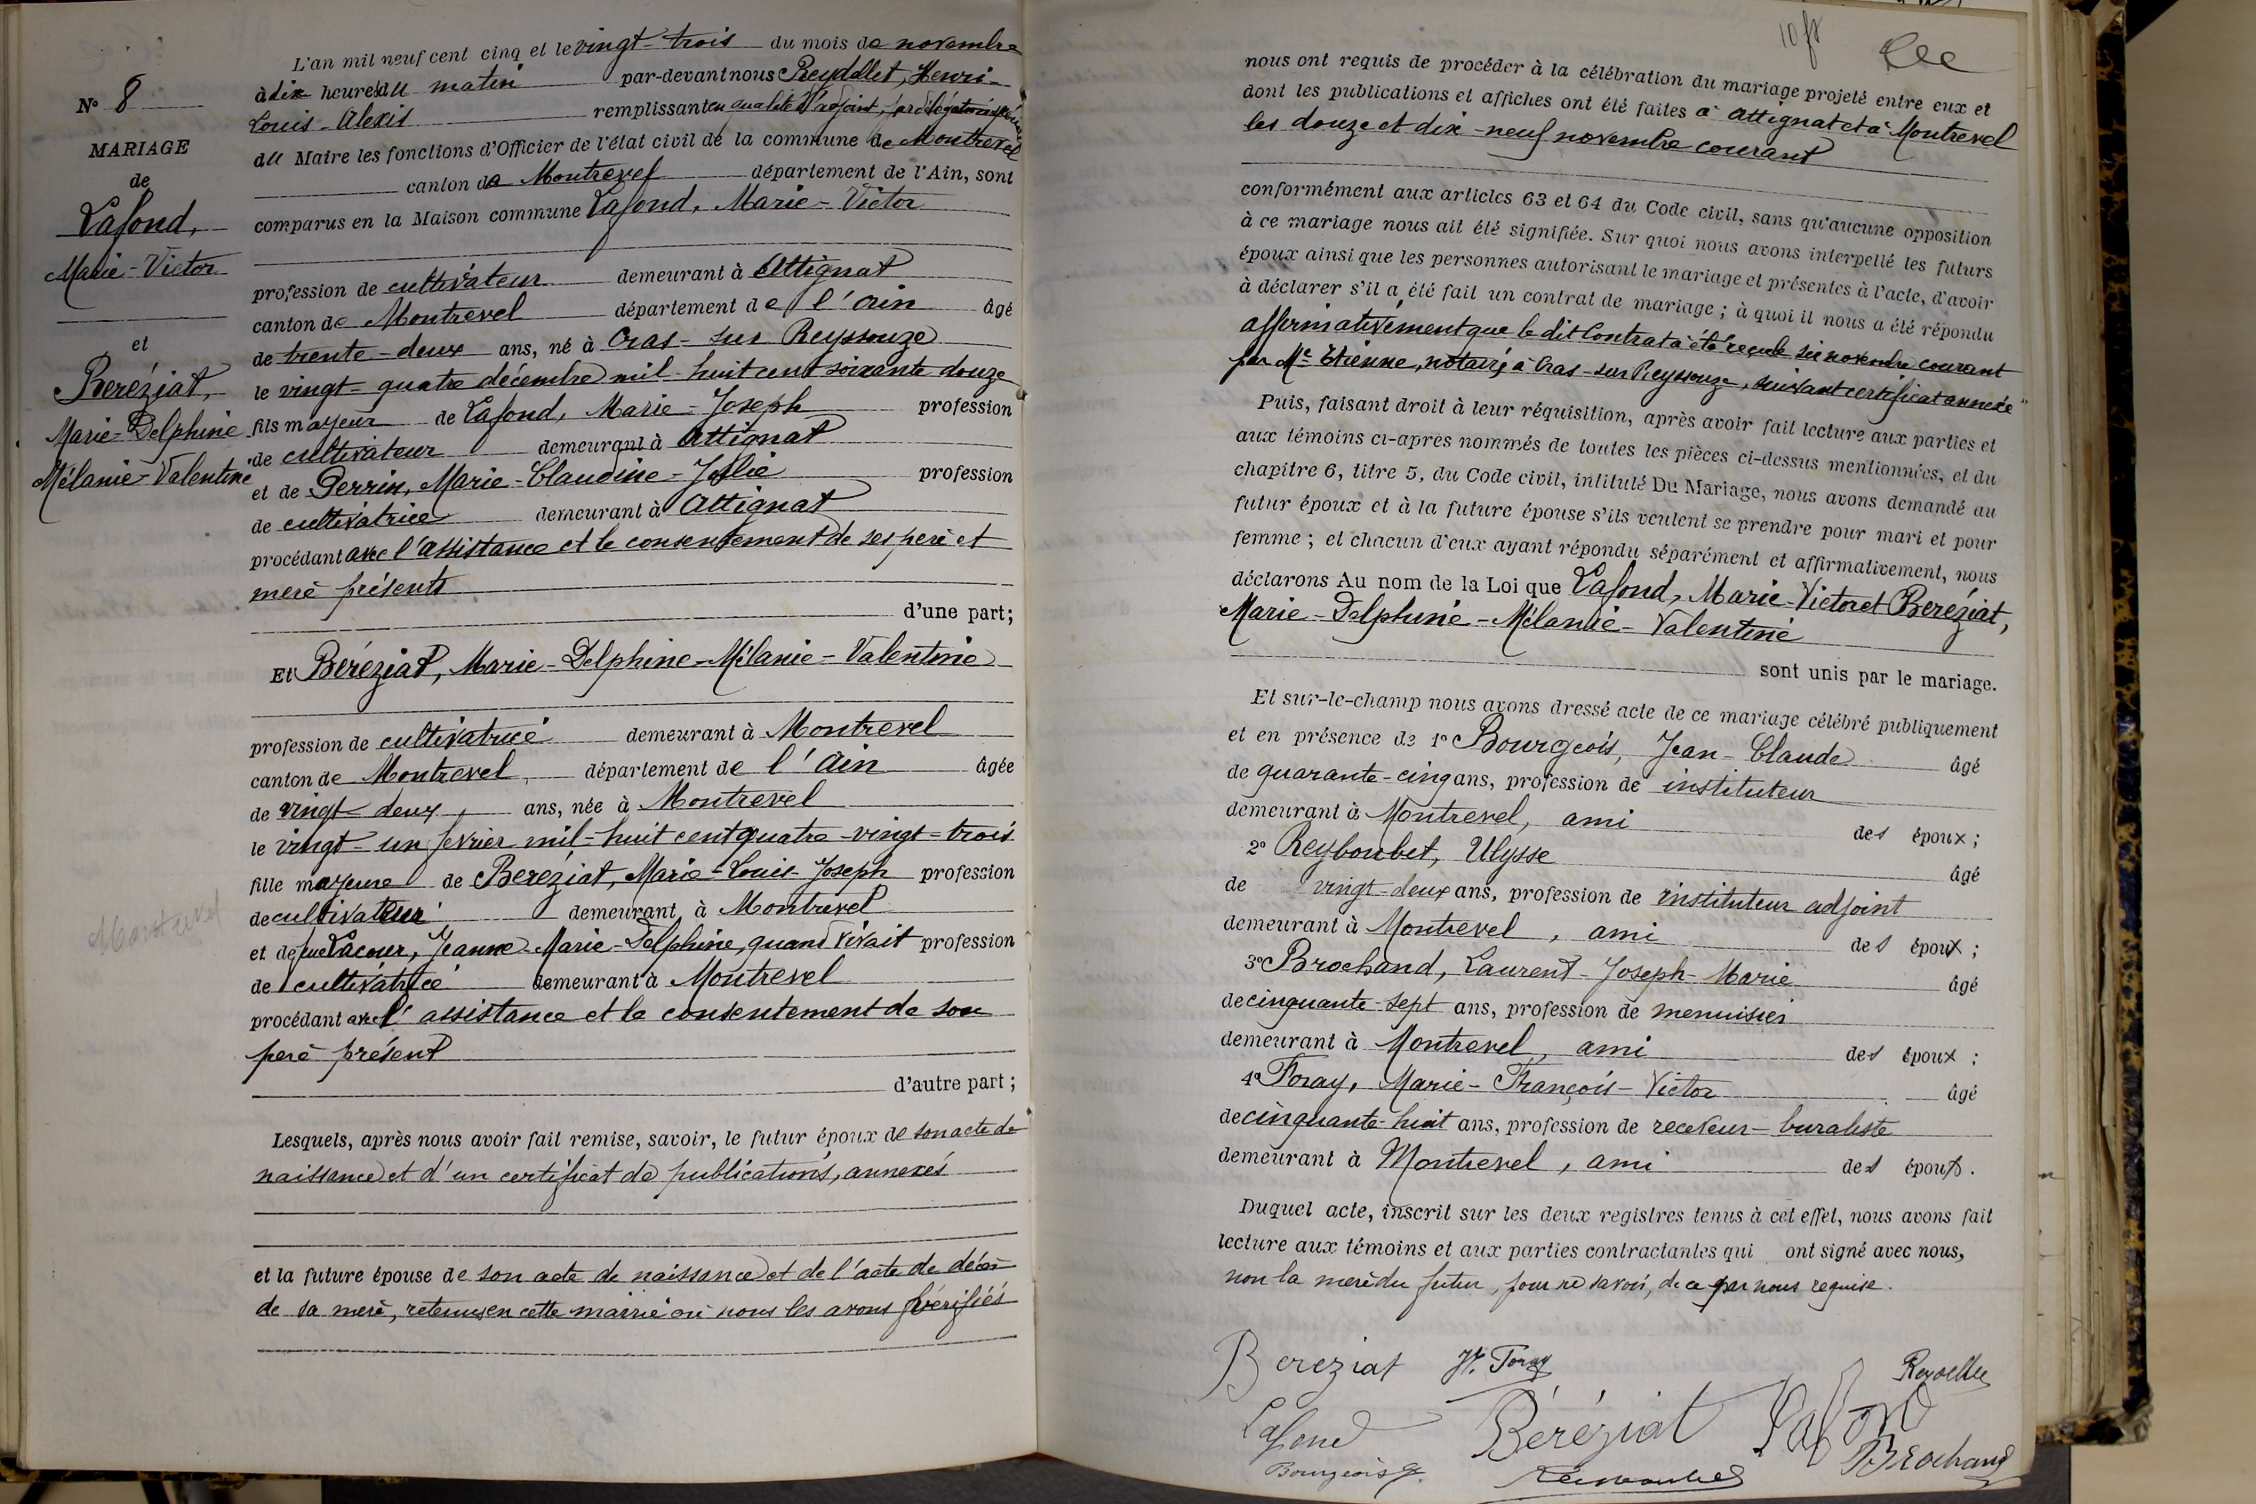 N° 8
MARIAGE
de
Lafond,
Marie-Victor
et
Beréziat,
Marie-Delphine
Mélanie-Valentine
Montrevel
L'an mil neuf cent cinq et le vingt-trois du mois de novembre
à dix heures du matin par-devant nous Reydellet, Henri-
Louis-Alexis remplissant en qualité d'adjoint, par délégation
du Maire les fonctions d'Officier de l'état civil de la commune de Montrevel
canton de Montrevel département de l'Ain, sont
comparus en la Maison commune Lafond, Marie-Victor
profession de cultivateur demeurant à Attignat
canton de Montrevel département de l'ain âgé
de trente-deux ans, né à Cras-sur Reyssouze
le vingt-quatre décembre mil-huit cent soixante douze
fils mayeur de Lafond, Marie-Joseph profession
de cultivateur demeurant à Attignat
et de Perrin, Marie-Claudine-Julie profession
de cultivatrice demeurant à Attignat
procédant avec l'assistance et le consentement de ses père et
mère présents
d'une part;
Et Beréziat, Marie-Delphine-Mélanie-Valentine
profession de cultivatrice demeurant à Montrevel
canton de Montrevel, département de l'ain âgée
de vingt deux, ans, née à Montrevel
le vingt-un fevrier mil-huit cent quatre-vingt-trois
fille mayeure de Beréziat, Marie-Louis-Joseph profession
de cultivateur demeurant à Montrevel
et de feue Lacour, Jeanne-Marie-Delphine, quand vivait profession
de cultivatrice demeurant à Montrevel
procédant avec l'assistance et le consentement de son
père présent
d'autre part;
Lesquels, après nous avoir fait remise, savoir, le futur époux de son acte de
naissance et d'un certificat de publications, annexés
et la future épouse de son acte de naissance et de l'acte de décès
de sa mère, retenus en cette mairie où nous les avons vérifiés
10 fr
nous ont requis de procéder à la célébration du mariage projeté entre eux et
dont les publications et affiches ont été faites à attignat et à Montrevel
les douze et dix-neuf novembre courant
conformément aux articles 63 et 64 du Code civil, sans qu'aucune opposition
à ce mariage nous ait été signifiée. Sur quoi nous avons interpellé les futurs
époux ainsi que les personnes autorisant le mariage et présentes à l'acte, d'avoir
à déclarer s'il a été fait un contrat de mariage; à quoi il nous a été répondu
affirmativement que le dit Contrat a été reçu le six novembre courant
par Me Etienne, notaire à Cras-sur Reyssouze, suivant certificat annexé
Puis, faisant droit à leur réquisition, après avoir fait lecture aux parties et
aux témoins ci-après nommés de toutes les pièces ci-dessus mentionnées, et du
chapitre 6, titre 5, du Code civil, intitulé Du Mariage, nous avons demandé au
futur époux et à la future épouse s'ils veulent se prendre pour mari et pour
femme; et chacun d'eux ayant répondu séparément et affirmativement, nous
déclarons Au nom de la Loi que Lafond, Marie-Victor et Beréziat,
Marie-Delphine-Mélanie-Valentine
sont unis par le mariage.
Et sur-le-champ nous avons dressé acte de ce mariage célébré publiquement
et en présence de 1° Bourgeois, Jean-Claude âgé
de quarante-cinq ans, profession de instituteur
demeurant à Montrevel, ami des époux;
2° Reyboubet, Ulysse âgé
de vingt-deux ans, profession de instituteur adjoint
demeurant à Montrevel, ami des époux;
3° Brochand, Laurent-Joseph-Marie âgé
de cinquante-sept ans, profession de menuisier
demeurant à Montrevel, ami des époux;
4° Foray, Marie-François-Victor âgé
de cinquante-huit ans, profession de receveur-buraliste
demeurant à Montrevel, ami des époux.
Duquel acte, inscrit sur les deux registres tenus à cet effet, nous avons fait
lecture aux témoins et aux parties contractantes qui ont signé avec nous,
non la mère du futur, pour ne savoir, de ce par nous requise.
Bereziat Vr. Foray Reydellet
Lafond Béréziat Lafond
Bourgeois Brochand